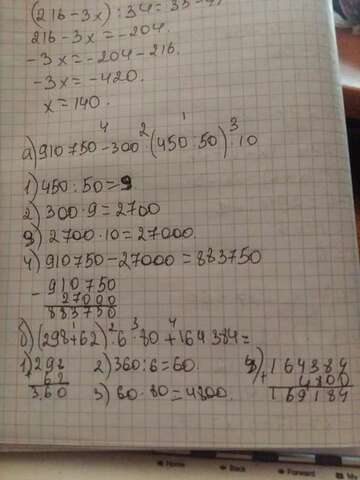 (216-3x):34=33-
216-3x=-204.
-3x=-204-216.
-3x=-420.
x=140.
4 2 1 3
а) 910750-300·(450:50)·10
1) 450:50=9
2) 300·9=2700
3) 2700·10=27000.
4) 910750-27000=883750
- 910750
27000
883750
1 2 3 4
б) (298+62):6·80+164384=
1) 298 2) 360:6=60. 4) 164384
62 + 4800
360 3) 60·80=4800. 169184
Home Back Forward Mark